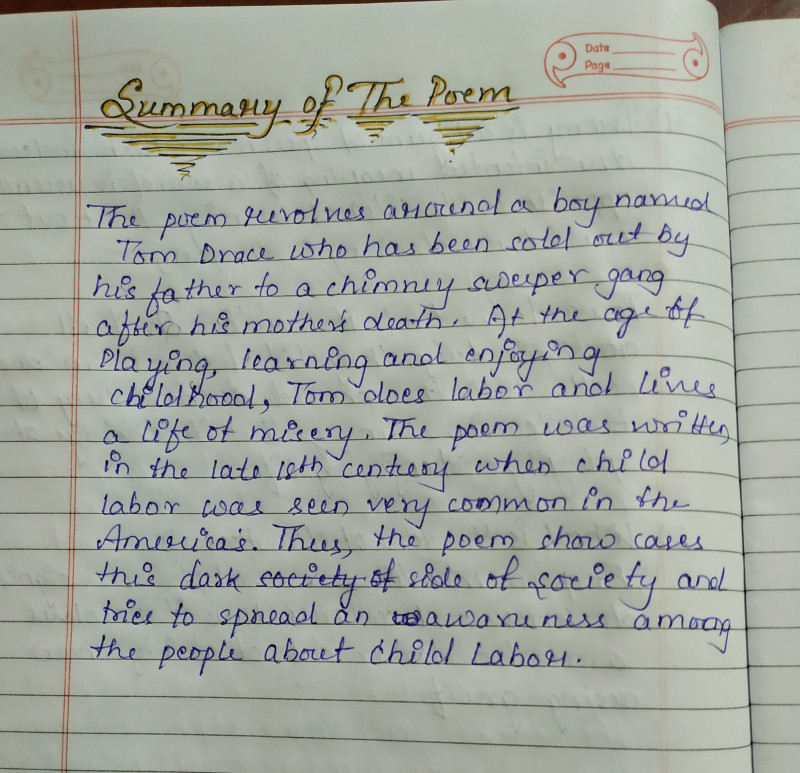 Date
Page
Summary of The Poem
The poem revolves around a boy named
Tom Drace who has been sold out by
his father to a chimney sweeper gang
after his mother's death. At the age of
Playing, learning and enjoying
childhood, Tom does labor and lives
a life of misery. The poem was written
in the late 18th century when child
labor was seen very common in the
America's. Thus, the poem show cases
this dark society of side of society and
tries to spread an to awareness among
the people about child Labor.